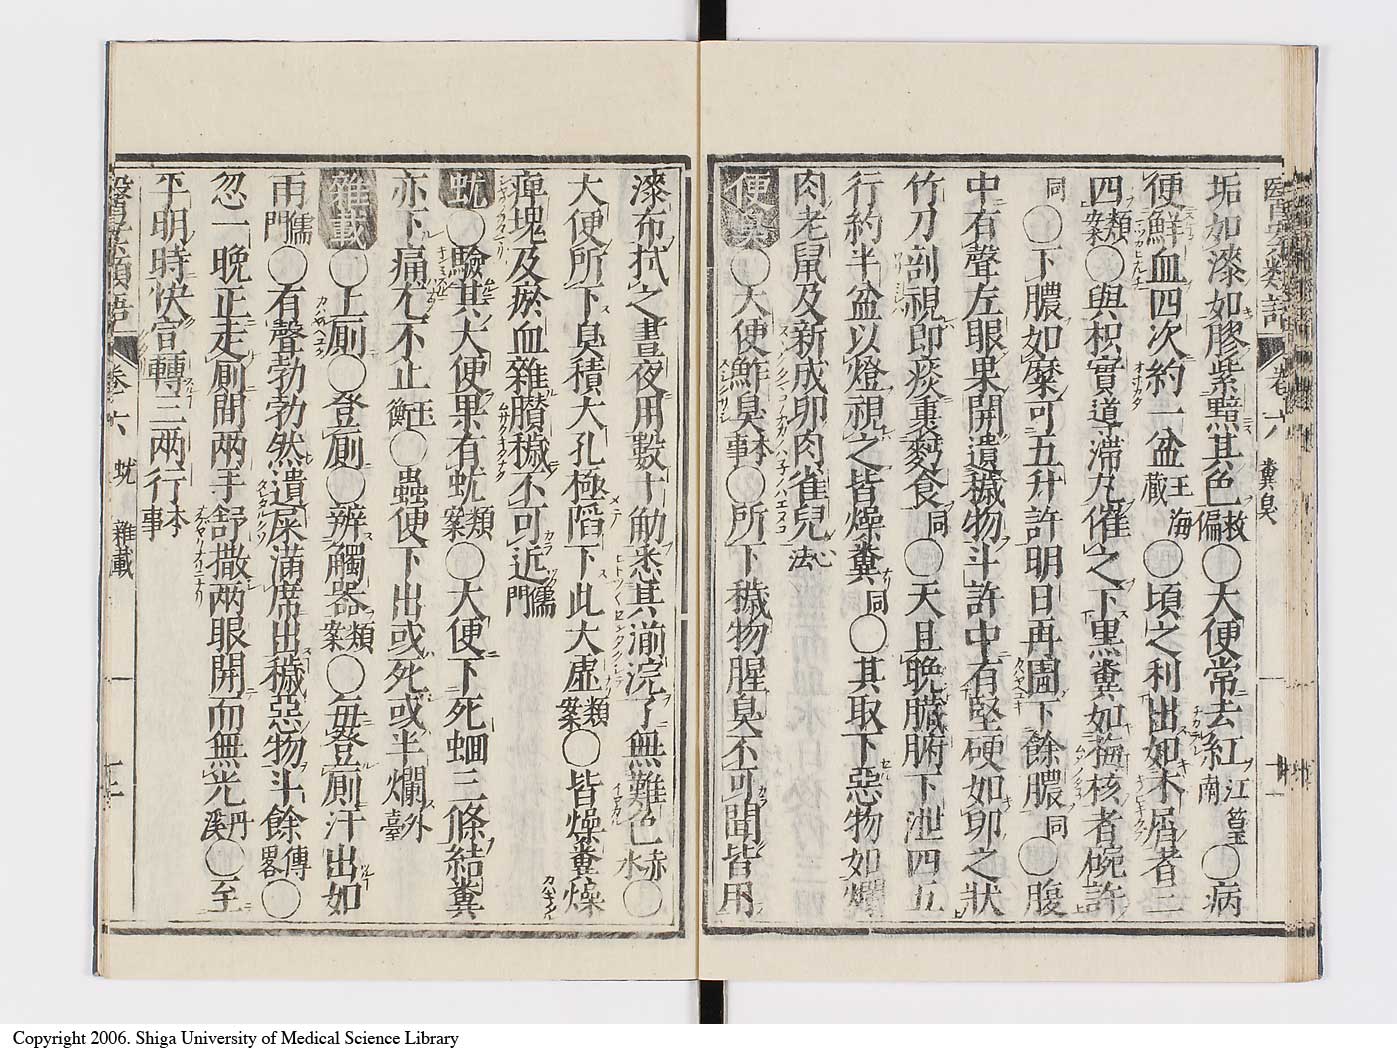 垢如漆如膠紫黯其色救偏○大便常去紅江南○病
便鮮血四次約一盆王海藏○頃之利出如木屑者三
四類案○與枳實導滯丸催之下黑糞如梅核者碗許
同○下膿如糜可五升許明日再圊下餘膿同○腹
中有聲左眼果開遺穢物斗許中有堅硬如卵之狀
竹刀剖視即痰裹麪食同○天且晚臟腑下泄四五
行約半盆以燈視之皆燥糞同○其取下惡物如爛
肉老鼠及新成卵肉雀兒心法
便臭○大便鮓臭本事○所下穢物腥臭不可聞皆用
漆布拭之晝夜用數十觔悉其湔浣了無難色赤水○
大便所下臭積大孔極陷下此大虛類案○皆燥糞燥
痺塊及瘀血雜臢穢不可近儒門
蚘○驗其大便果有蚘類案○大便下死蛔三條結糞
亦下痛尤不止玉衡○蟲便下出或死或半爛外臺
雜載○上厠○登厠○辨觸器類案○毎登厠汗出如
雨儒門○有聲勃勃然遺屎滿席出穢惡物斗餘傳畧○
忽一晚正走厠間兩手舒撒兩眼開而無光丹溪○至
平明時快宣轉三兩行本事
卷六 蚘 雜載
Copyright 2006. Shiga University of Medical Science Library